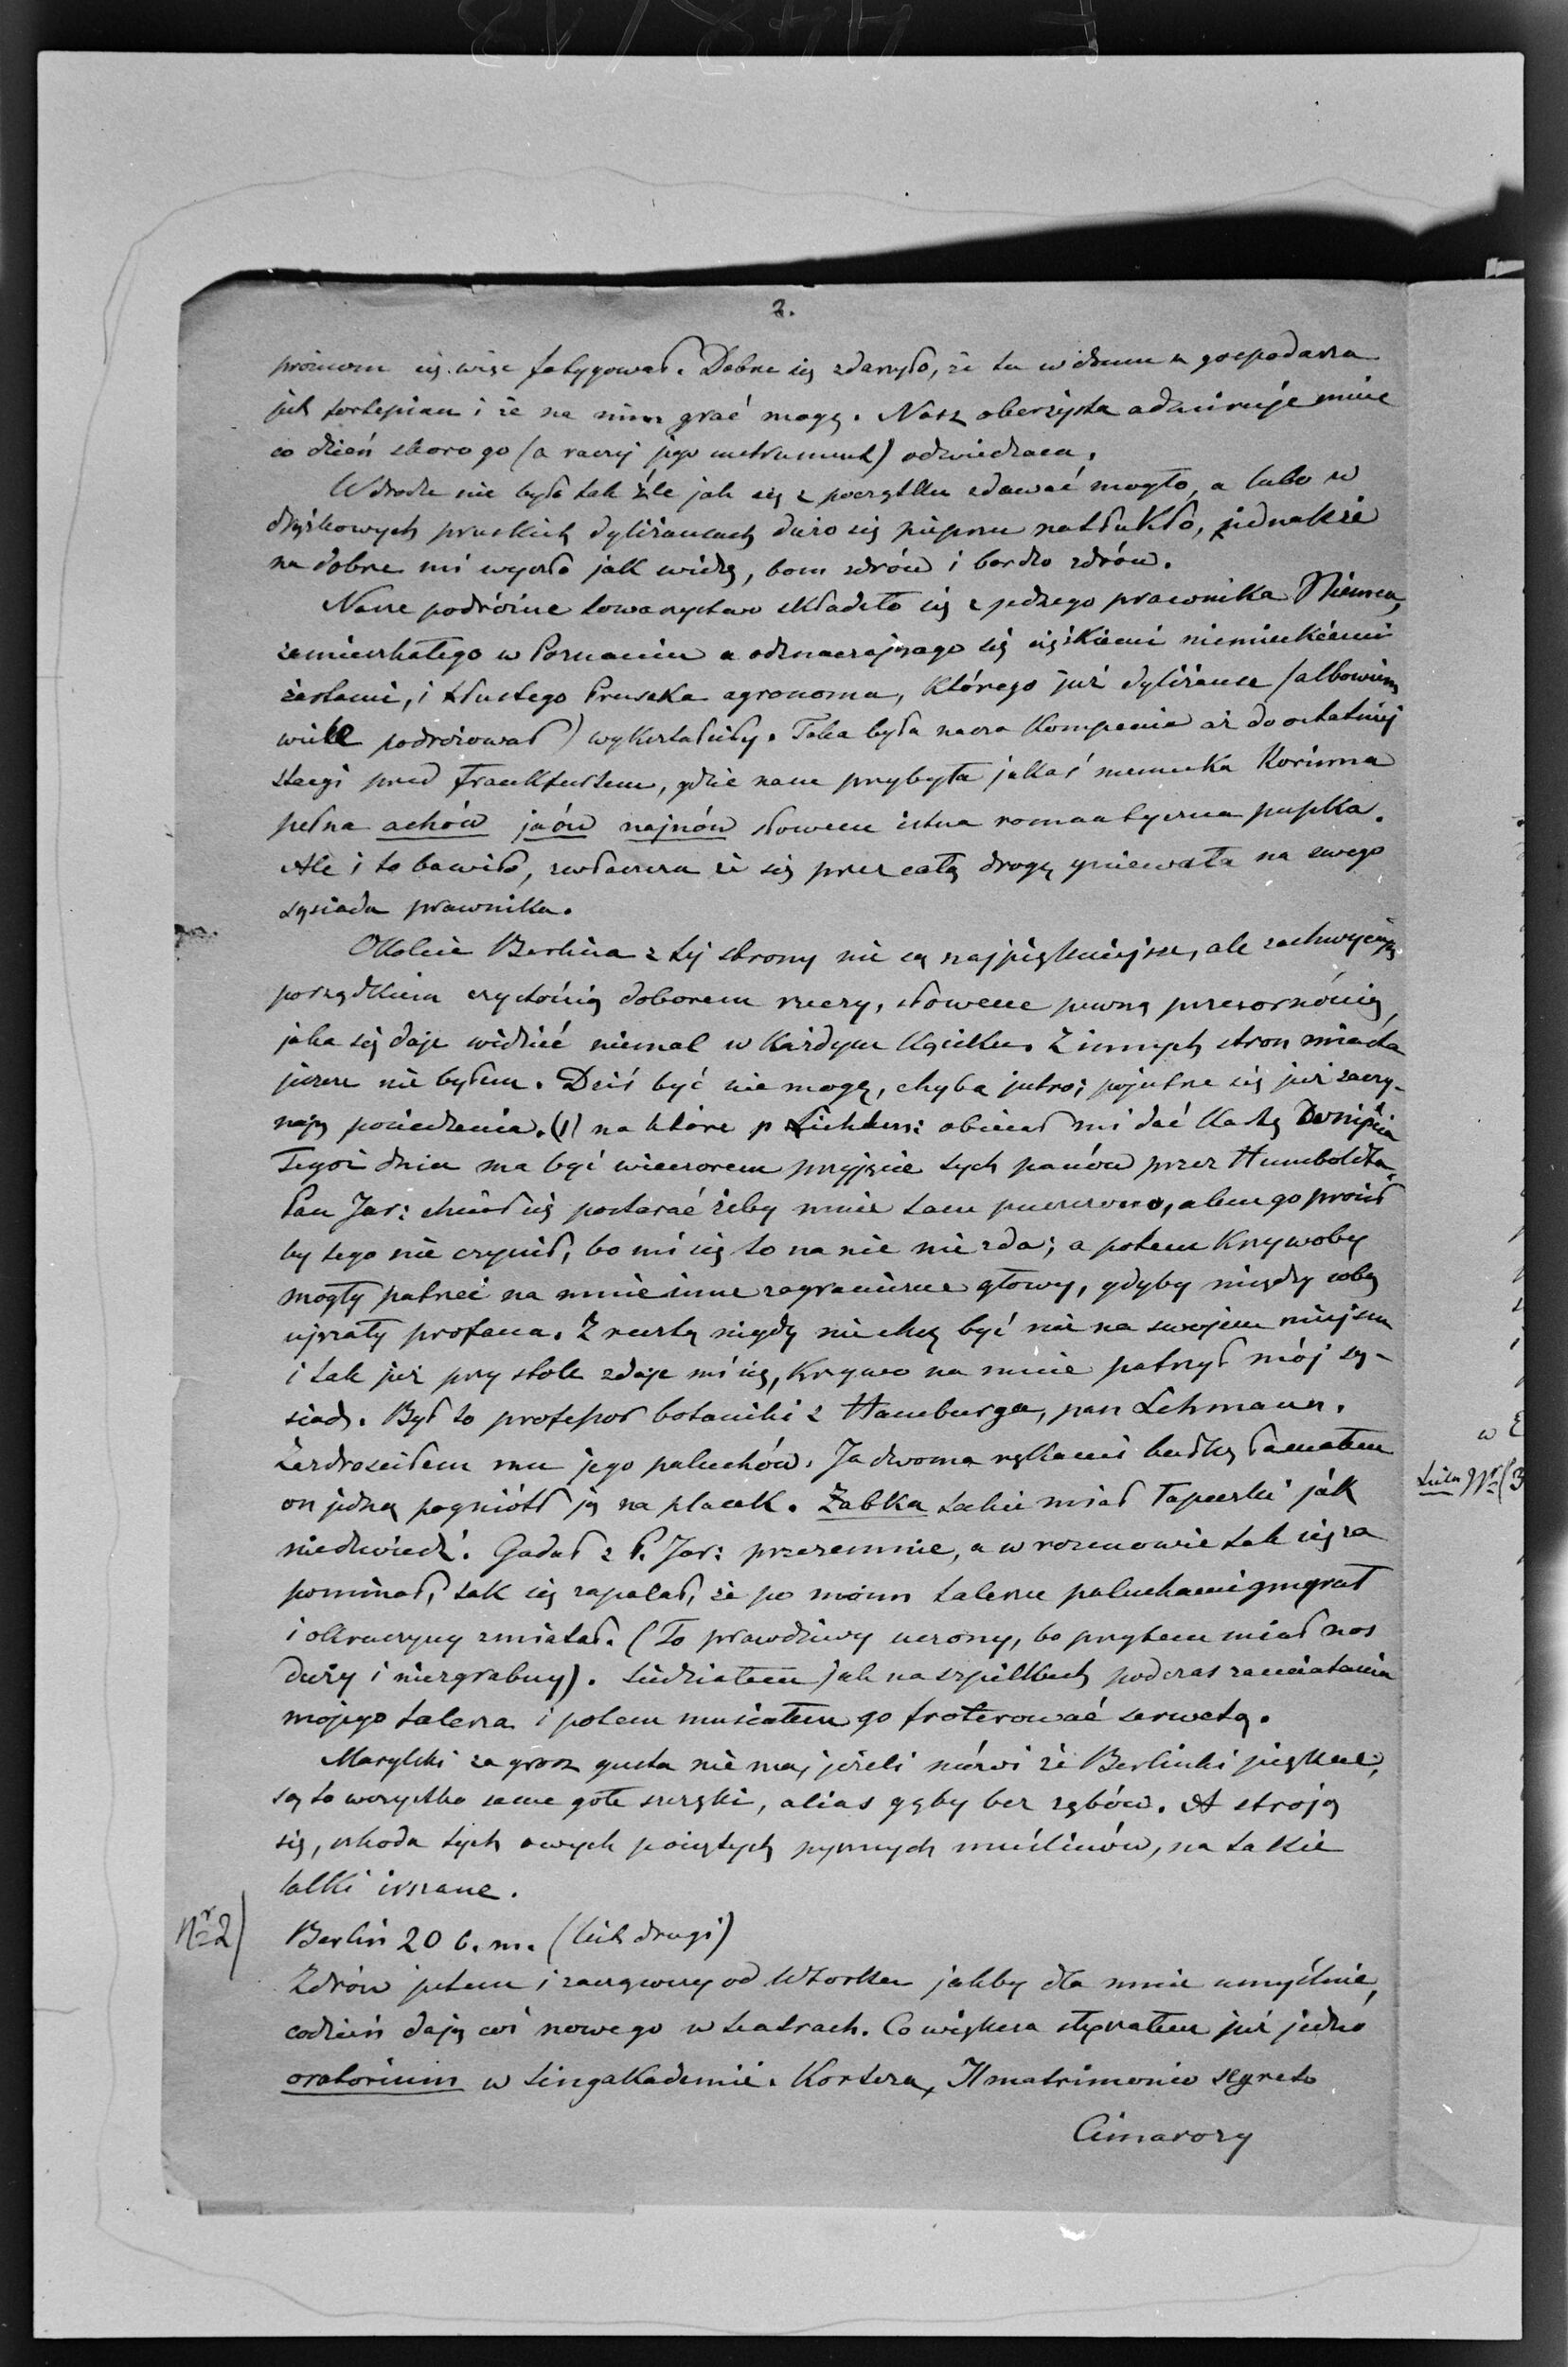 2.
próżnom się więc fatygował. Dobrze się zdarzyło, że tu w domu u gospodarza
jest fortepian i że na nim grać mogę. Nasz oberżysta admiruje mnie
co dzień skoro go (a raczej jego instrument) odwiedzam.
W drodze nie było tak źle jak się z początku zdawać mogło, a lubo w
drążkowych pruskich dyliżansach dużo się pieprzu natłukło, jednakże
na dobre mi wyszło jak widzę, bom zdrów i bardzo zdrów.
Nasze podróżne towarzystwo składało się z jednego prawnika Niemca,
zamieszkałego w Poznaniu a odznaczającego się ciężkiemi niemieckiemi
żartami, i tłustego Prusaka agronoma, którego już dyliżanse (albowiem
wiele podróżował) wykształciły. Taka była nasza kompania aż do ostatniej
stacyi przed Frankfurtem, gdzie nam przybyła jakaś niemiecka Korinna
pełna achów jaów najnów słowem istna romantyczna pupka.
Ale i to bawiło, zwłaszcza że się przez całą drogę gniewała na swego
sąsiada prawnika.
Okolice Berlina z tej strony nie są najpiękniejsze, ale zachwycają
porządkiem czystością doborem rzeczy, słowem pewną przezornością,
jaka się daje widzieć niemal w każdym kąciku. Z innych stron miasta
jeszcze nie byłem. Dziś być nie mogę, chyba jutro; pojutrze się już zaczy-
nają posiedzenia. (1) na które p Lichten: obiecał mi dać kartę wnijścia
Tegoż dnia ma być wieczorem przyjęcie tych panów przez Humboldta.
Pan Jar: chciał się postarać żeby mnie tam puszczono, alem go prosił
by tego nie czynił, bo mi się to na nic nie zda; a potem krzywoby
mogły patrzeć na mnie inne zagraniczne głowy, gdyby między sobą
ujrzały profana. Zresztą nigdy nie chcę być nie na swojem miejscu
i tak już przy stole zdaje mi się, krzywo na mnie patrzył mój są-
siad. Był to professor botaniki z Hamburga, pan Lehmann.
Zazdrościłem mu jego paluchów. Ja dwoma rękami bułkę łamałem
on jedną pogniótł ją na placek. Żabka takie miał łapeczki jak
niedźwiedź. Gadał z P. Jar: przezemnie, a w rozmowie tak się za
pominał, tak się zapalał, że po moim talerzu paluchami gmyrał
i okruszyny zmiatał. (To prawdziwy uczony, bo przytem miał nos
duży i niezgrabny). Siedziałem jak na szpilkach podczas zamiatania
mojego talerza i potem musiałem go froterować serwetą.
Marylski za grosz gustu nie ma, jeżeli mówi że Berlinki piękne,
są to wszystko same gołe szczęki, alias gęby bez zębów. A stroją
się, szkoda tych owych pociętych pysznych muślinów, na takie
lalki irszane.
Nr 2) Berlin 20 b. m. (list drugi)
Zdrów jestem i zacząwszy od Wtorku jakby dla mnie umyślnie,
codzień dają coś nowego w teatrach. Co większa słyszałem już jedno
oratorium w Singakademie. Korteza, Il matrimonio segreto
Cimarozy
w
List Nr (3